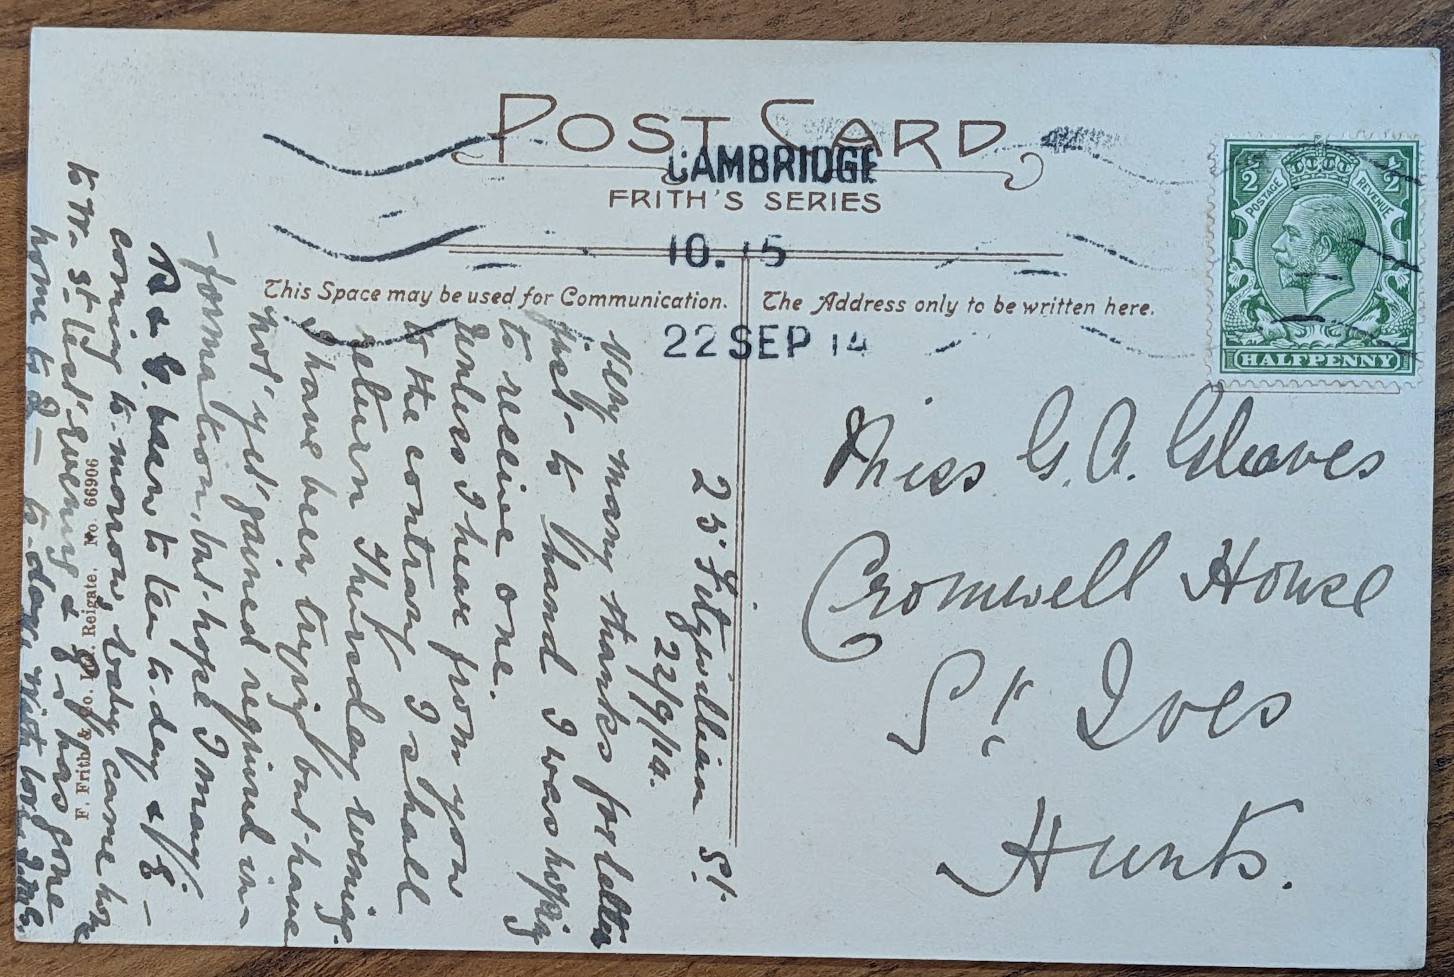 POST CARD
CAMBRIDGE
FRITH'S SERIES
10. 15
22 SEP 14
This Space may be used for Communication.
The Address only to be written here.
½ ½
POSTAGE REVENUE
HALFPENNY
Miss G. A. Gleaves
Cromwell House
St. Ives
Hunts.
25 Fitzwilliam St.
22/9/14.
Very many thanks for letter
just to hand I was hoping
to receive one.
Unless I hear from you
to the contrary I shall
return Thursday evening.
I have been trying but have
not yet gained required in-
-formation, but hope I may.
B & G. been to tea to-day &
coming to-morrow, baby came home
to W. St last evening & has gone
home to to-day,
F. Frith & Co. Ltd. Reigate. No. 66906